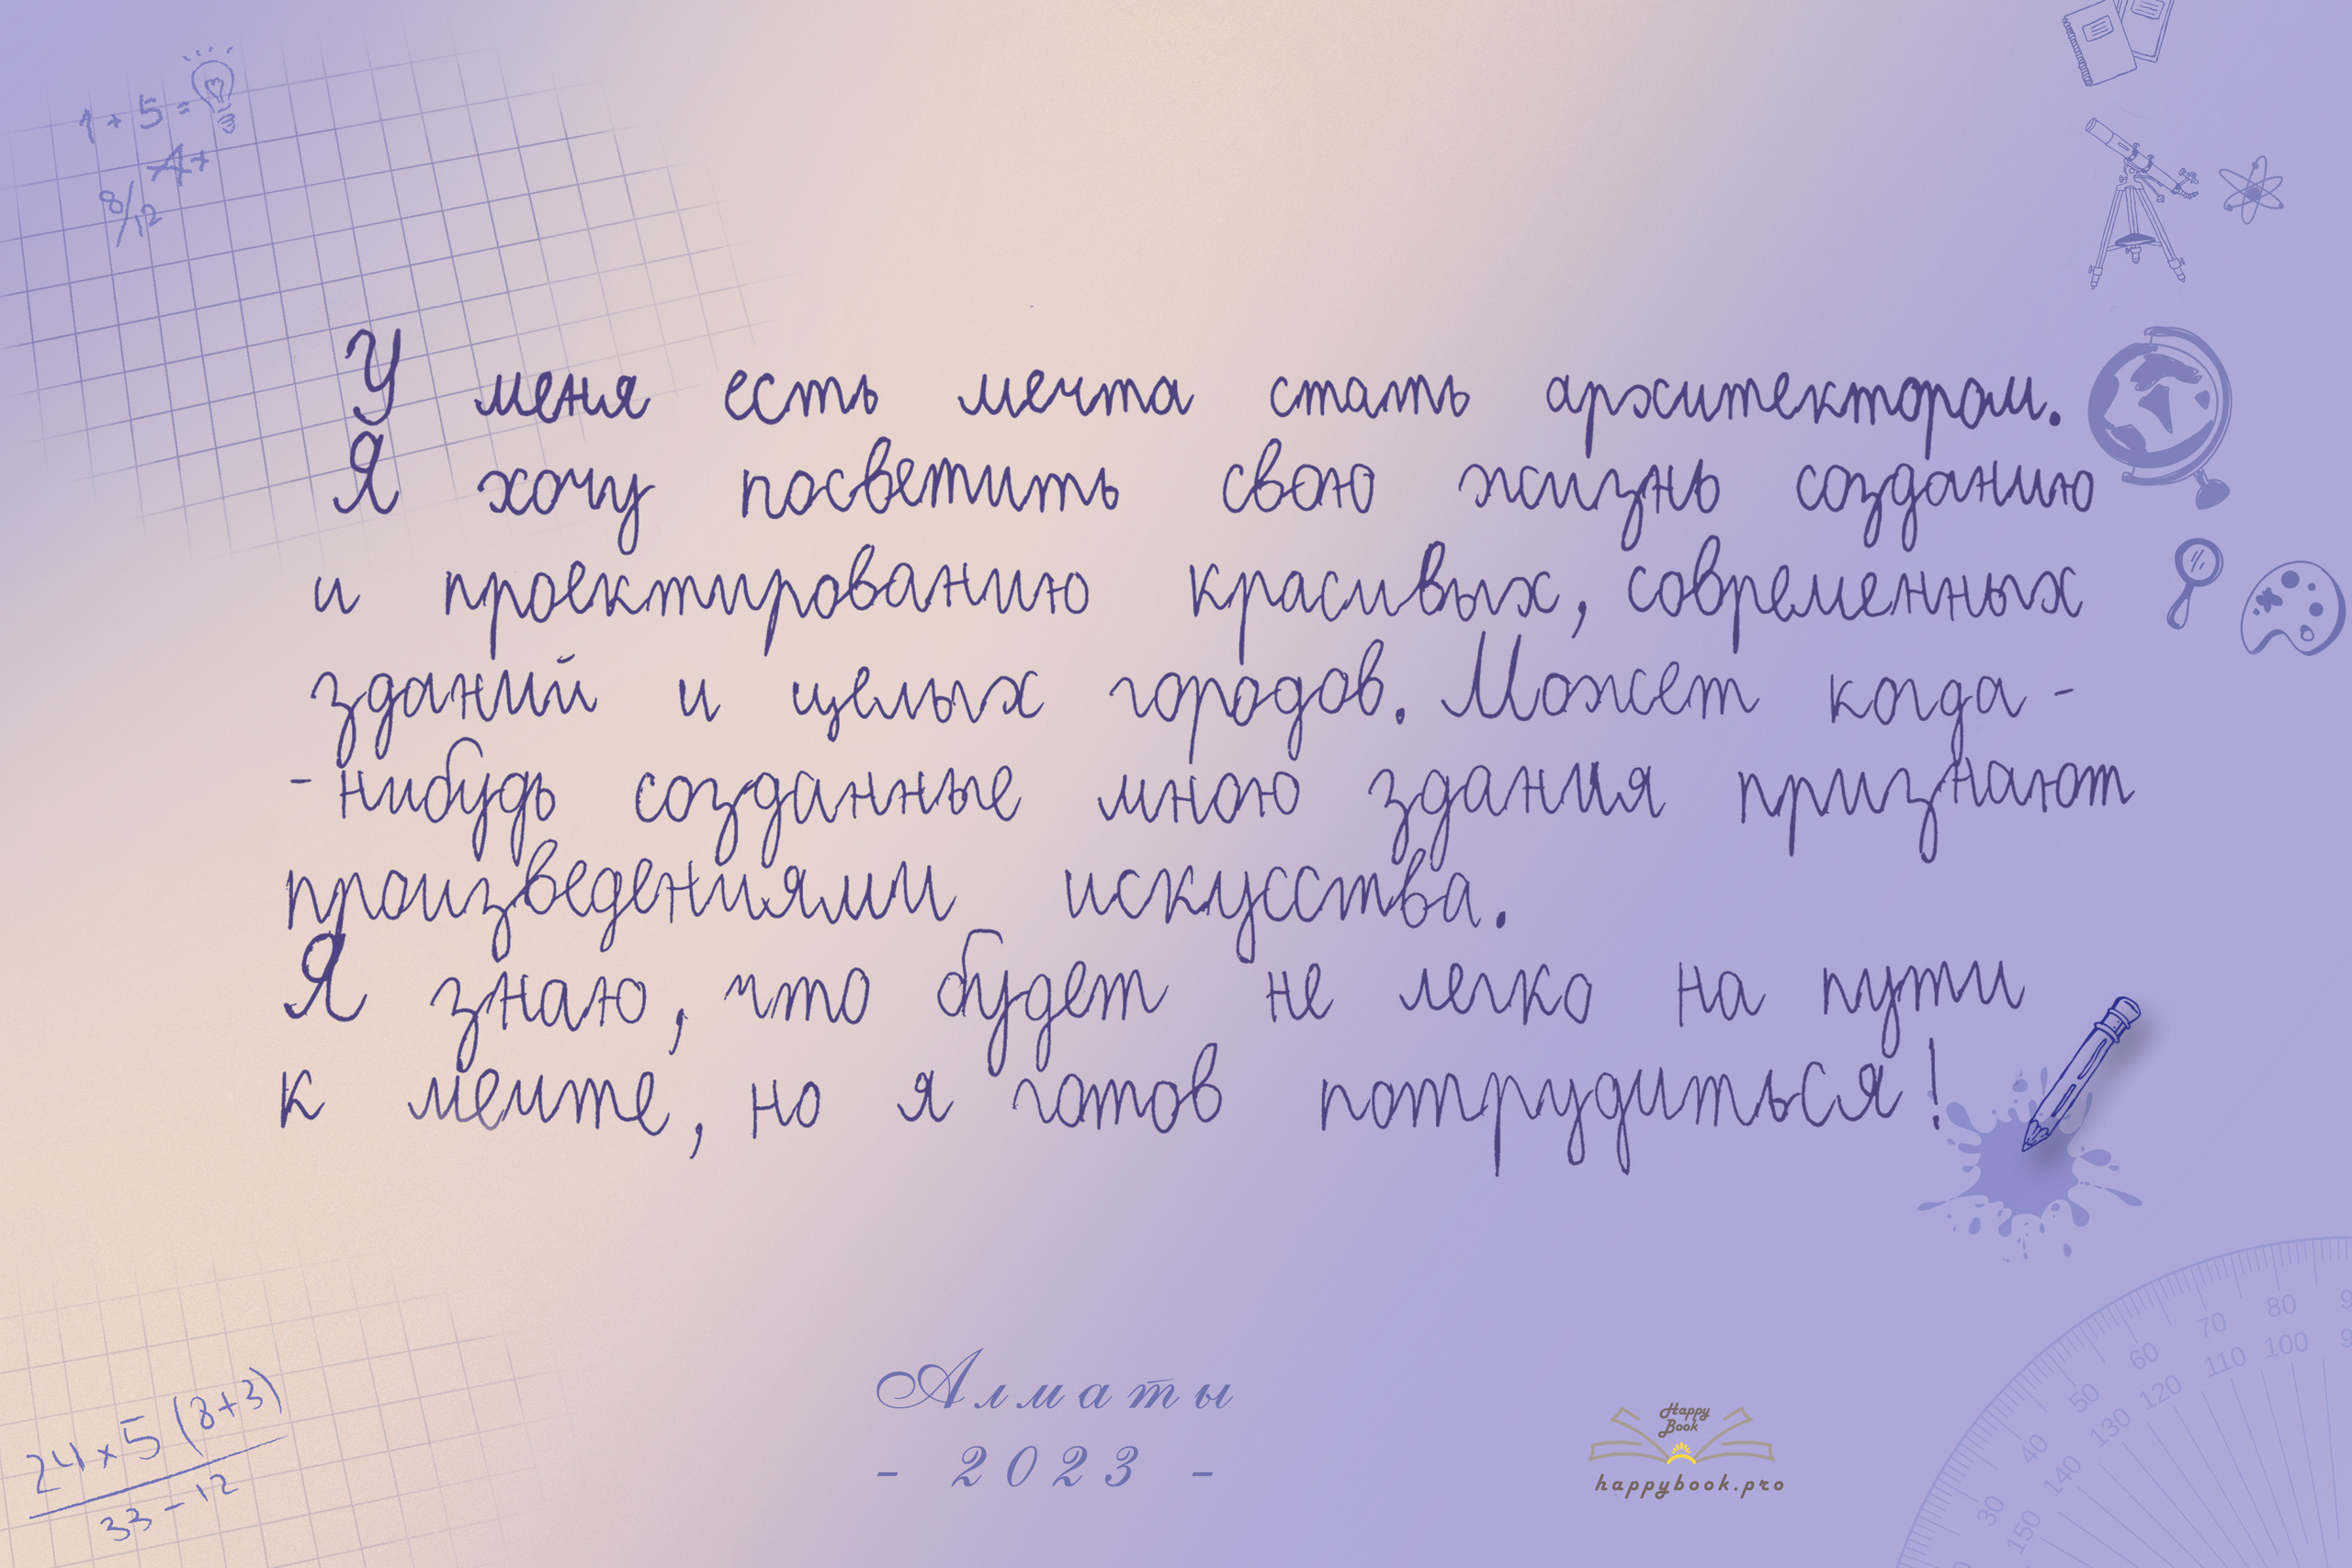 1 + 5 =
A+
8/12
У меня есть мечта стать архитектором.
Я хочу посветить свою жизнь созданию
и проектированию красивых, современных
зданий и целых городов. Может когда -
- нибудь созданные мною здания признают
произведениями искусства.
Я знаю, что будет не легко на пути
к мечте, но я готов потрудиться!
24 × 5 (8+3)
33 - 12
Алматы
- 2023 -
Happy
Book
happybook.pro
80
70
100
60
110
50
120
40
130
30
140
150